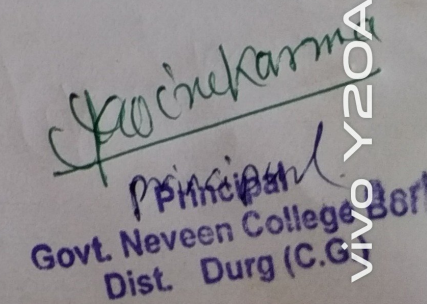 principal.
Principal
Govt. Neveen College
Dist. Durg (C.G.)
vivo Y20A